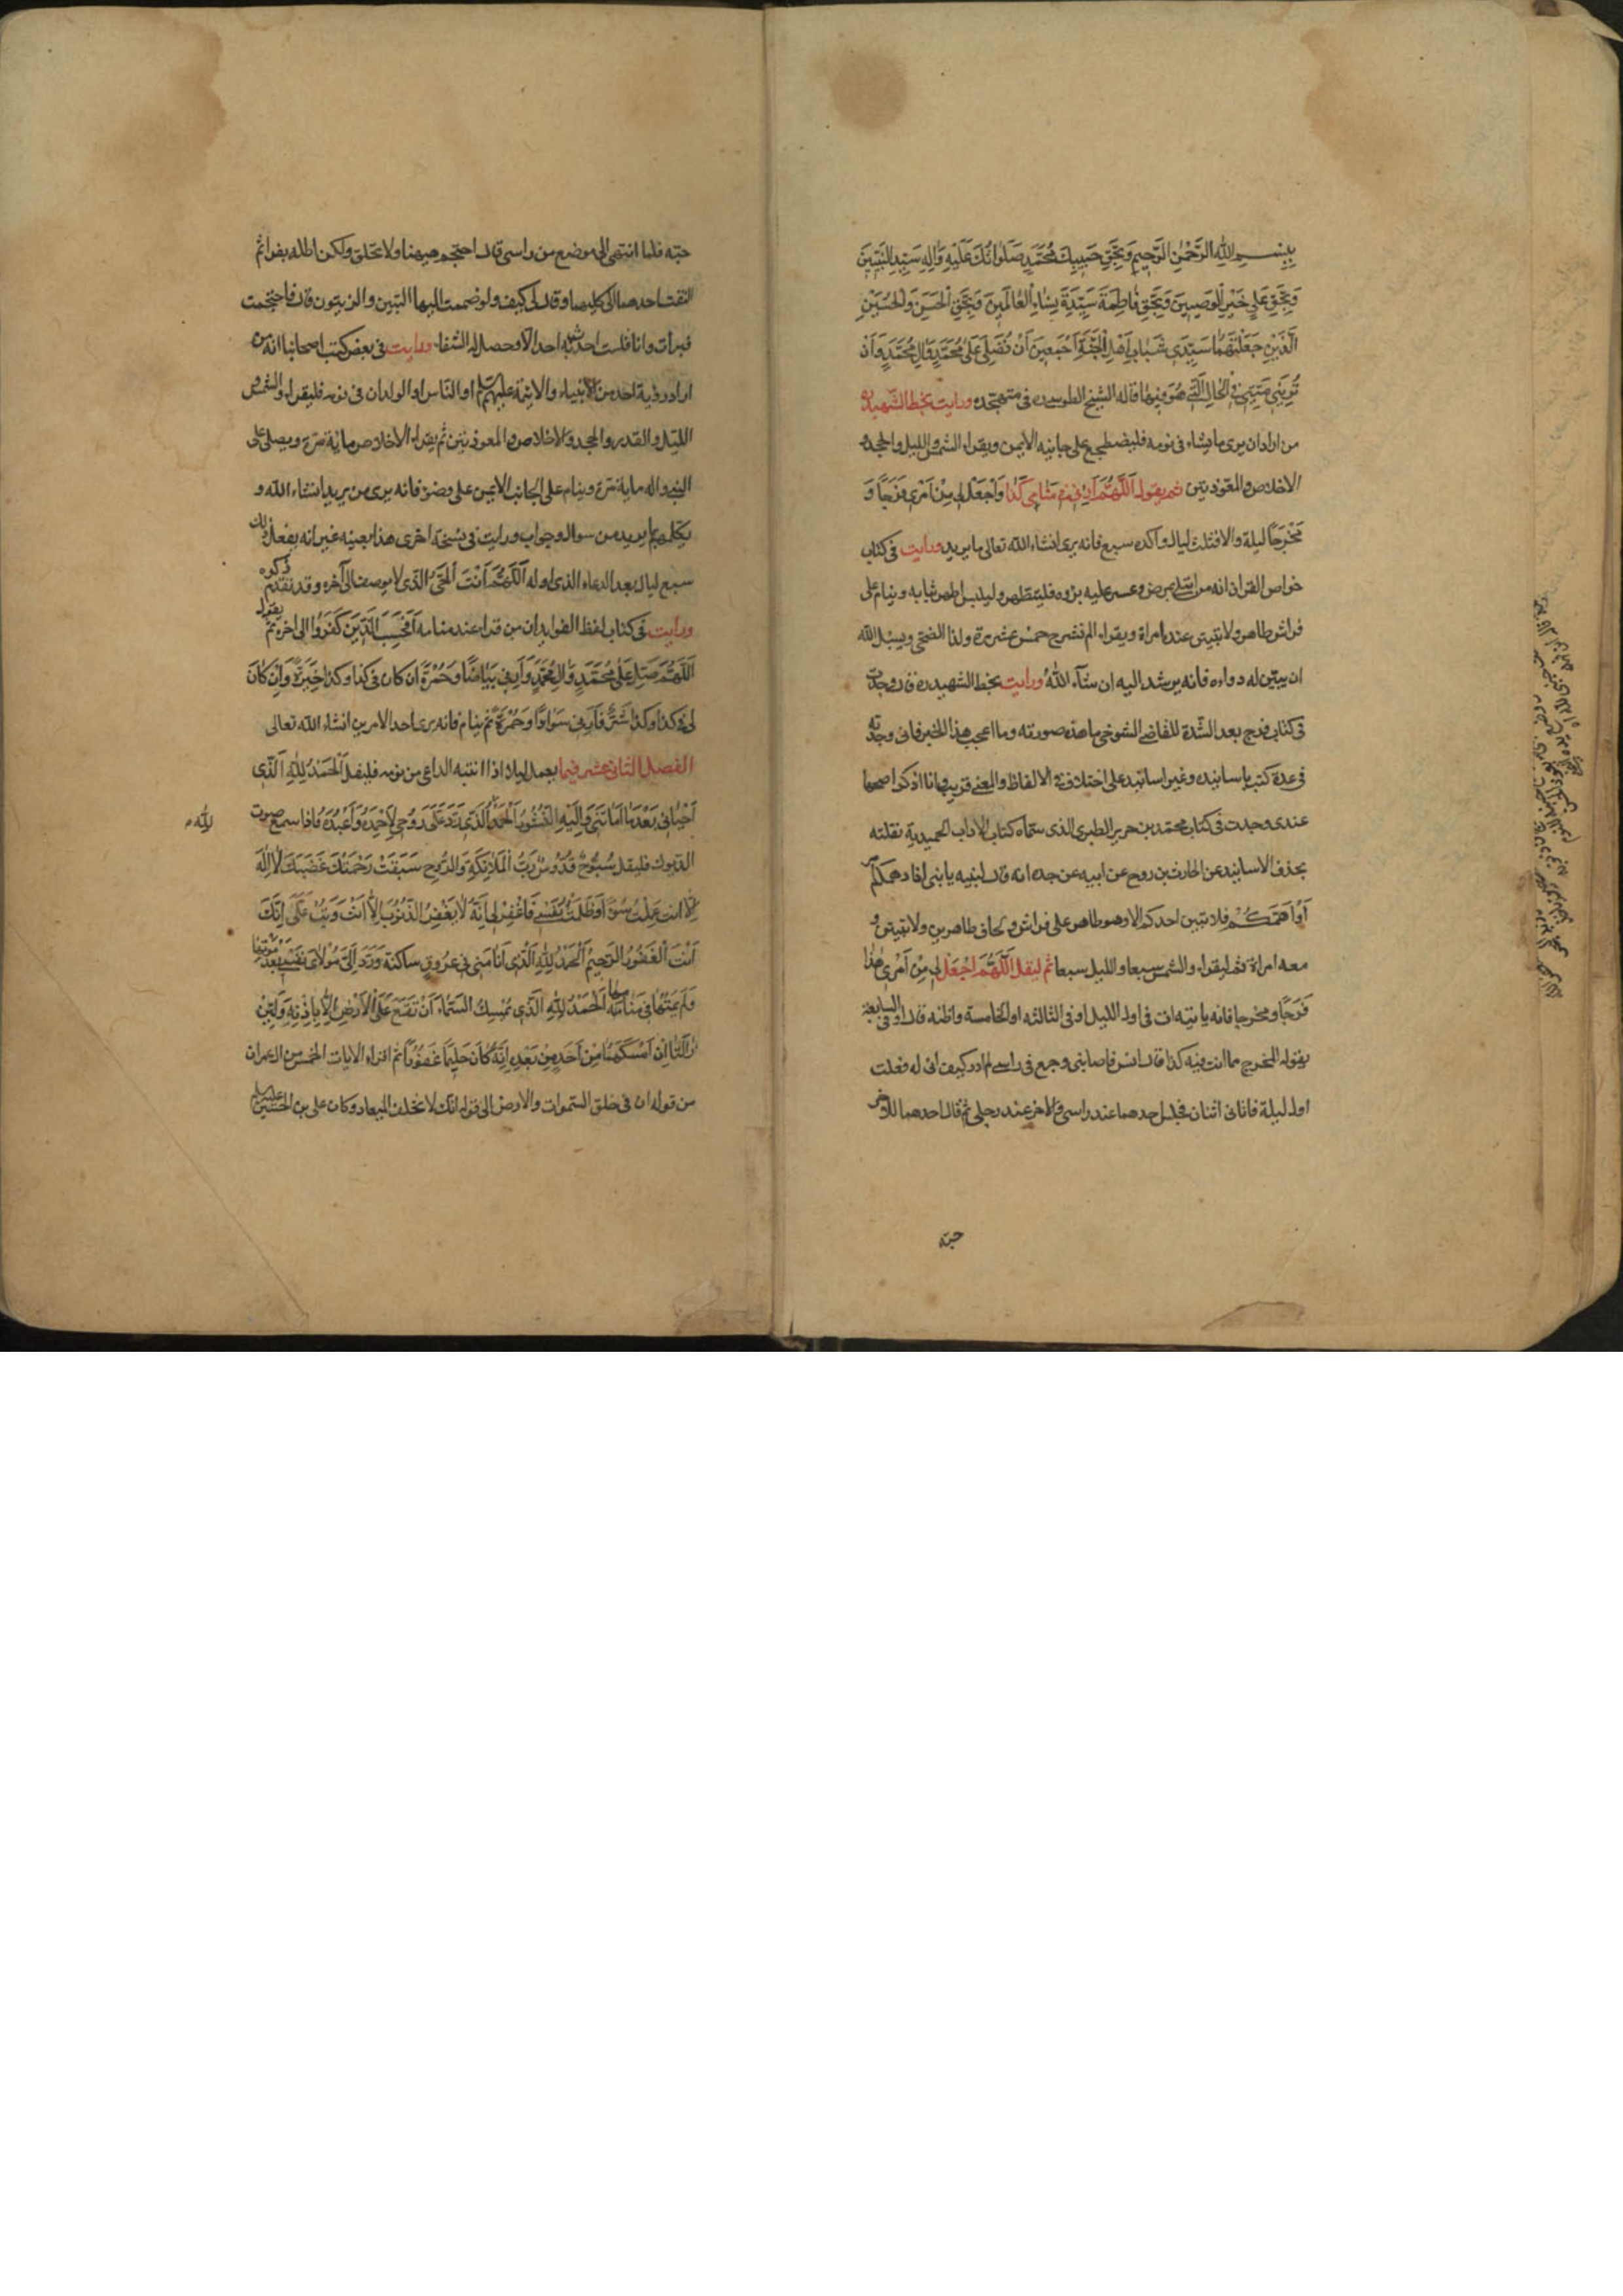 بِبِسْمِ اللّٰهِ الرَّحْمٰنِ الرَّحِيمِ وَبِحَقِّ حَبِيبِكَ مُحَمَّدٍ صَلَوَاتُكَ عَلَيْهِ وَآلِهِ سَيِّدِ النَّبِيِّينَ
وَبِحَقِّ عَلِيٍّ خَيْرِ الْوَصِيِّينَ وَبِحَقِّ فَاطِمَةَ سَيِّدَةِ نِسَاءِ الْعَالَمِينَ وَبِحَقِّ الْحَسَنِ وَالْحُسَيْنِ
الَّذَيْنِ جَعَلْتَهُمَا سَيِّدَيْ شَبَابِ أَهْلِ الْجَنَّةِ أَجْمَعِينَ أَنْ تُصَلِّيَ عَلَى مُحَمَّدٍ وَآلِ مُحَمَّدٍ وَأَنْ
تُرِيَنِي مَيِّتِي فِي الْحَالِ الَّتِي هُوَ فِيهَا قاله الشيخ الطوسي ره في متهجده ورايت بخط الشهيد ره
من اراد ان يرى ما يشاء في نومه فليضطجع على جانبه الايمن ويقراء الشمس والليل والجحد و
الاخلاص والمعوذتين ثم يقول اَللّٰهُمَّ أَرِنِي فِي مَنَامِي كَذَا وَاجْعَلْ لِي مِنْ أَمْرِي فَرَجًا وَ
مَخْرَجًا ليلة والا فثلث ليال واكده سبع فانه يرى انشاء الله تعالى ما يريد ورايت في كتاب
خواص القران انه من ابتلى بمرض وعسر عليه بروه فليتطهر وليلبس اطهر ثيابه وينام على
فراش طاهر ولا تبيتن عنده امراة ويقراء الم نشرح خمس عشر مرة ولذا الضحى ويسئل الله
ان يبين له دواءه فانه يرشد اليه ان شآء الله ورايت بخط الشهيد ره قال وجدت
في كتاب فرج بعد الشدة للقاضي التنوخي ما هذه صورته وما اعجب هذا الخبر فاني وجدته
في عدة كتب باسانيده وغير اسانيد على اختلاف في الالفاظ والمعنى قريب وانا اذكر اصحها
عندي وجدت في كتاب محمد بن جرير الطبري الذي سماه كتاب الاداب الحميدية نقلته
بحذف الاسانيد عن الحارث بن روح عن ابيه عن جده انه قال لبنيه يا بني اذا دهمكم امر
أَوْ أَهَمَّكُمْ فلا يبيتن احدكم الا وهو طاهر على فراش ولحاف طاهرين ولا تبيتن و
معه امراة ثم ليقراء والشمس سبعا والليل سبعا ثم ليقل اَللّٰهُمَّ اجْعَلْ لِي مِنْ أَمْرِي هٰذَا
فَرَجًا ومخرجا فانه ياتيه ات في اول الليل او في الثالثه او الخامسة واظنه قال او في السابعة
يقول له المخرج مما انت فيه كذا قال انس فاصابني وجع في راسي لم ادر كيف اتى له ففعلت
اول ليلة فاتاني اثنان فجلس احدهما عند راسي والاخر عند رجلي ثم قال احدهما للاخر
جسّه
جسّه فلما انتهى الى موضع من راسي قال احتجم هيهنا ولا تحلق ولكن اطله بغراء ثم
التفت احدهما الى كليهما وقال لي كيف ولو ضممت اليها التين والزيتون قال فاحتجمت
فبرأت وانا فلست احدث به احدا الا وحصل له الشفاء ورايت في بعض كتب اصحابنا انه من
اراد رؤية احد من الانبياء والائمة عليهم السلم او الناس او الوالدان في نومه فليقراء والشمس
الليل والقدر والجحد والاخلاص والمعوذتين ثم يقراء الاخلاص مائة مرة ويصلي على
النبي واله ماية مرة وينام على الجانب الايمن على وضوء فانه يرى من يريد انشاء الله و
يكلمهم بما يريد من سوال وجواب ورايت في نسخة اخرى هذا بعينه غير انه يفعل ذلك
سبع ليال بعد الدعاء الذي اوله اَللّٰهُمَّ أَنْتَ الْحَيُّ الَّذِي لا يوصف الى آخره وقد تقدم ذكره
ورايت في كتاب لفظ الفوايد ان من قراء عند منامه أَفَحَسِبَ الَّذِينَ كَفَرُوا الى اخره ثم يقول
اَللّٰهُمَّ صَلِّ عَلَى مُحَمَّدٍ وَآلِ مُحَمَّدٍ وَأَرِنِي بَيَاضًا وَخُضْرَةً ان كان في كذا وكذا خِيَرَةٌ وَإِنْ كَانَ
لِي في كَذَا وَكَذَا شَرٌّ فَأَرِنِي سَوَادًا وَحُمْرَةً ثم ينام فانه يرى احد الامرين انشاء الله تعالى
الفصل الثاني عشر فيما يعمل ليلا اذا انتبه الداعي من نومه فليقل اَلْحَمْدُ لِلّٰهِ الَّذِي
أَحْيَانِي بَعْدَ مَا أَمَاتَنِي وَإِلَيْهِ النُّشُورُ اَلْحَمْدُ الَّذِي رَدَّ عَلَيَّ رُوحِي لِأَحْمَدَهُ وَأَعْبُدَهُ فاذا سمع صوت
لله م
الديوك فليقل سُبُّوحٌ قُدُّوسٌ رَبُّ الْمَلَائِكَةِ وَالرُّوحِ سَبَقَتْ رَحْمَتُكَ غَضَبَكَ لَا إِلٰهَ
إِلَّا انت عَمِلْتُ سُوءًا وَظَلَمْتُ نَفْسِي فَاغْفِرْ لِي إِنَّهُ لَا يَغْفِرُ الذُّنُوبَ إِلَّا أَنْتَ وَتُبْ عَلَيَّ إِنَّكَ
أَنْتَ الْغَفُورُ الرَّحِيمُ اَلْحَمْدُ لِلّٰهِ الَّذِي أَنَامَنِي فِي عُرُوقٍ ساكنة وَرَدَّ إِلَيَّ مَوْلَايَ نَفْسِي بَعْدَ مَوْتِهَا
وَلَمْ يُمِتْهَا فِي مَنَامِهَا اَلْحَمْدُ لِلّٰهِ الَّذِي يُمْسِكُ السَّمَاءَ أَنْ تَقَعَ عَلَى الْأَرْضِ إِلَّا بِإِذْنِهِ وَلَئِنْ
زَالَتَا إِنْ أَمْسَكَهُمَا مِنْ أَحَدٍ مِنْ بَعْدِهِ إِنَّهُ كَانَ حَلِيمًا غَفُورًا ثم اقراء الايات الخمس من ال عمران
من قوله ان في خلق السموات والارض الى قوله انك لا تخلف الميعاد وكان علي بن الحسين عليه السلم